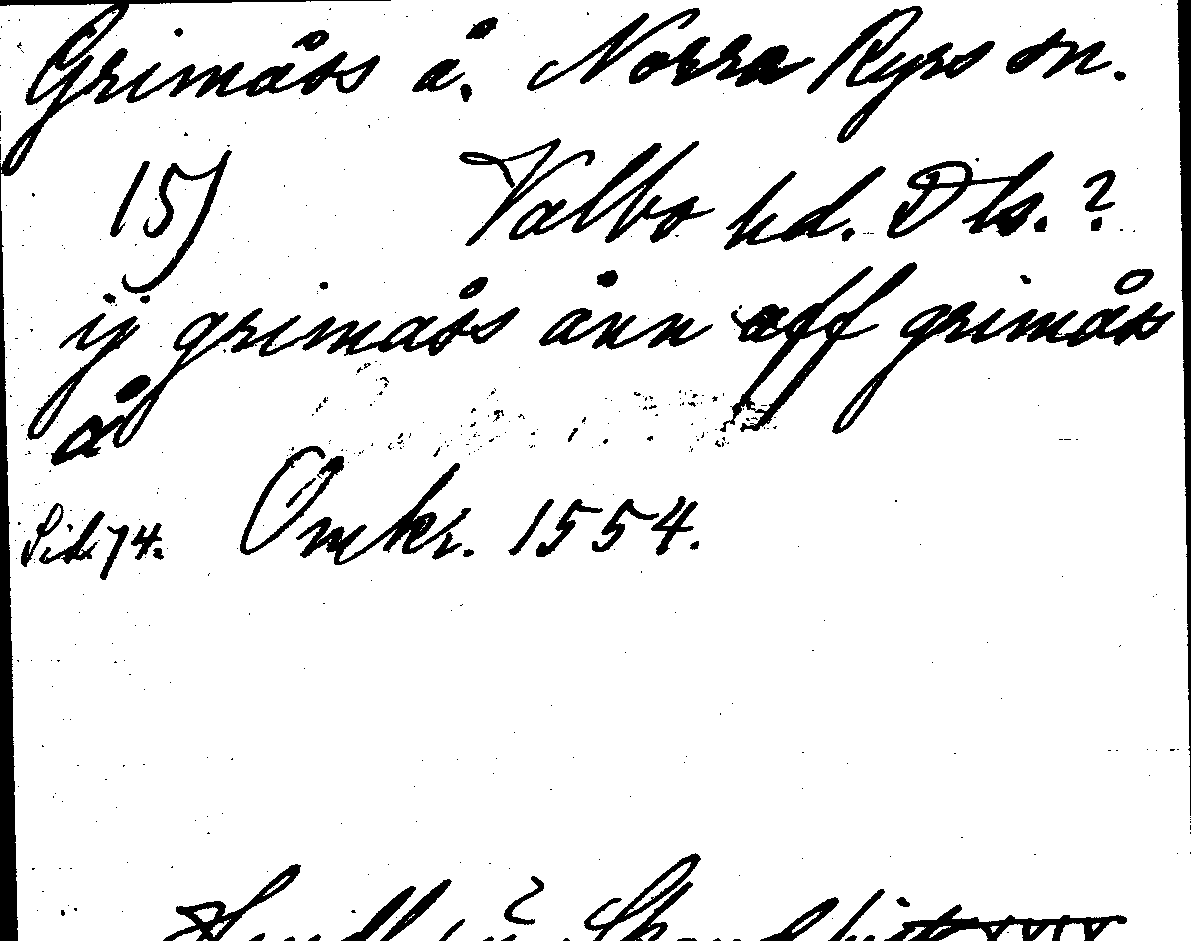 Grimåss å. Norra Ryrs sn.
15) Valbo hd. Dls.?
ij grimåss ånn aff grimåss
å
Sid. 74. Omkr. 1554.